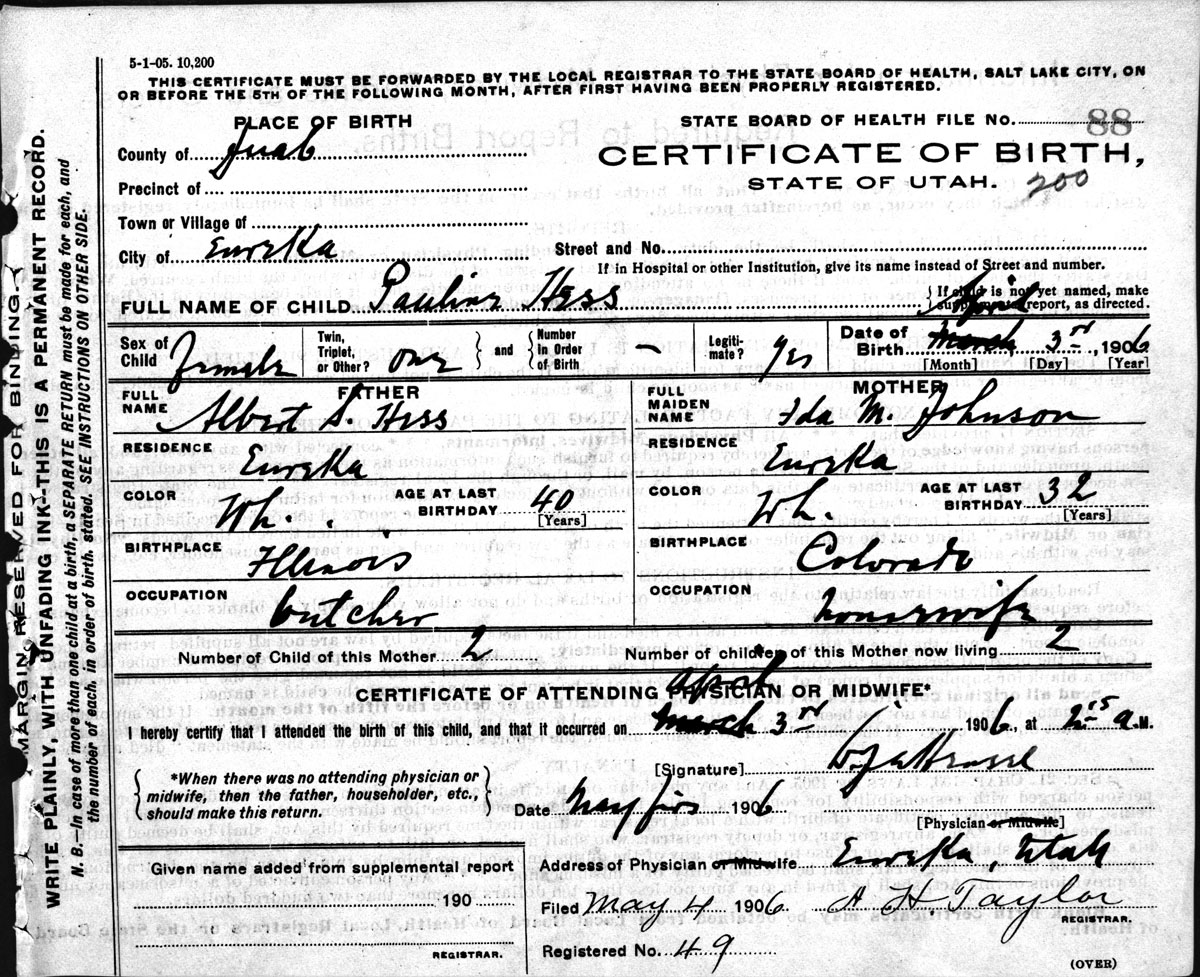 5-1-05. 10,200
THIS CERTIFICATE MUST BE FORWARDED BY THE LOCAL REGISTRAR TO THE STATE BOARD OF HEALTH, SALT LAKE CITY, ON
OR BEFORE THE 5TH OF THE FOLLOWING MONTH, AFTER FIRST HAVING BEEN PROPERLY REGISTERED.
MARGIN RESERVED FOR BINDING
WRITE PLAINLY, WITH UNFADING INK-THIS IS A PERMANENT RECORD.
N. B.—In case of more than one child at a birth, a SEPARATE RETURN must be made for each, and
the number of each, in order of birth, stated. SEE INSTRUCTIONS ON OTHER SIDE.
PLACE OF BIRTH
County of Juab
Precinct of
Town or Village of
City of Eureka
STATE BOARD OF HEALTH FILE No. 88
CERTIFICATE OF BIRTH,
STATE OF UTAH.
200
Street and No.
If in Hospital or other Institution, give its name instead of Street and number.
FULL NAME OF CHILD Pauline Hess
If child is not yet named, make
supplemental report, as directed.
Sex of Child Female
Twin, Triplet, or Other? one
and Number in Order of Birth —
Legitimate? Yes
Date of Birth March April 3rd, 1906
[Month] [Day] [Year]
FATHER
FULL NAME Albert S. Hess
RESIDENCE Eureka
COLOR Wh. AGE AT LAST BIRTHDAY 40 [Years]
BIRTHPLACE Illinois
OCCUPATION butcher
MOTHER
FULL MAIDEN NAME Ida M. Johnson
RESIDENCE Eureka
COLOR Wh. AGE AT LAST BIRTHDAY 32 [Years]
BIRTHPLACE Colorado
OCCUPATION housewife
Number of Child of this Mother 2
Number of children of this Mother now living 2
CERTIFICATE OF ATTENDING PHYSICIAN OR MIDWIFE*
I hereby certify that I attended the birth of this child, and that it occurred on March April 3rd 1906, at 2 15 a.M.
*When there was no attending physician or
midwife, then the father, householder, etc.,
should make this return.
[Signature]
Date May 1906
[Physician or Midwife]
Address of Physician or Midwife Eureka, Utah
Given name added from supplemental report
190
REGISTRAR.
Filed May 4 1906. A H Taylor
REGISTRAR.
Registered No. 49
(OVER)